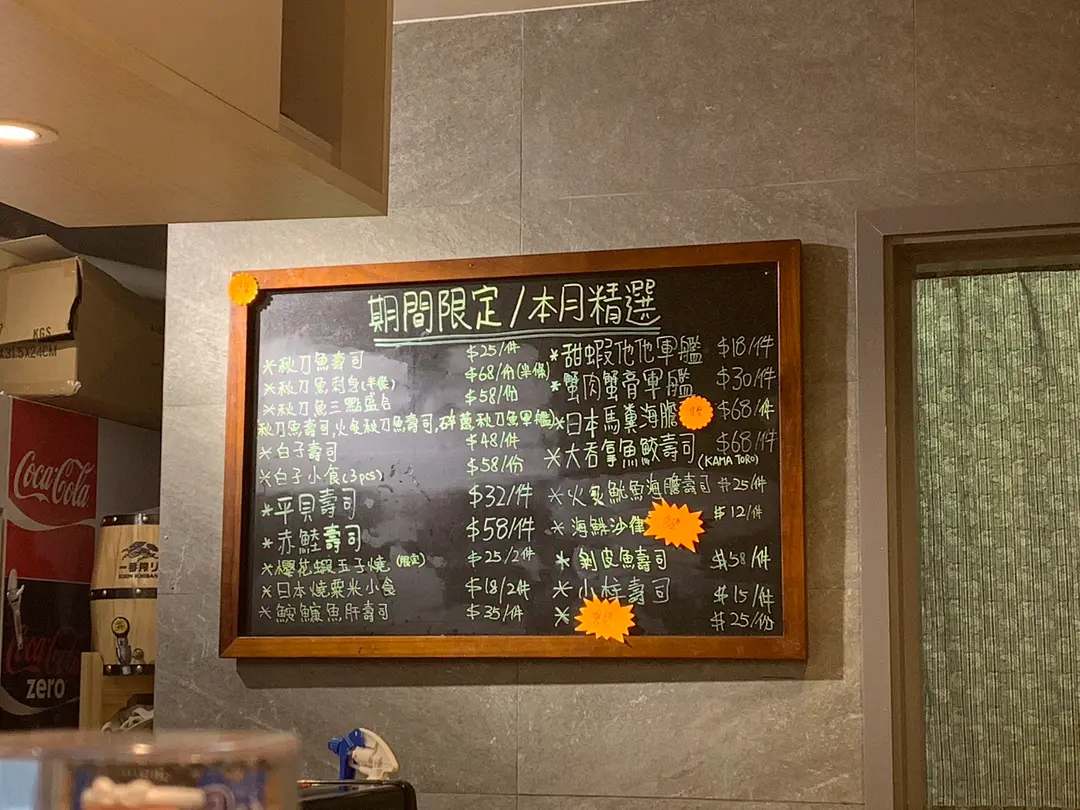 期間限定/本月精選
*秋刀魚壽司 $25/件
*秋刀魚刺身(半條) $68/份(半條)
*秋刀魚三點盛合 $58/份
秋刀魚壽司,火炙秋刀魚壽司,碎蔥秋刀魚軍艦
*白子壽司 $48/件
*白子小食(3pcs) $58/份
*平貝壽司 $32/件
*赤鯥壽司 $58/件
*櫻花蝦玉子燒(限定) $25/2件
*日本燒粟米小食 $18/2件
*鮟鱇魚肝壽司 $35/件
*甜蝦他他軍艦 $18/件
*蟹肉蟹膏軍艦 $30/件
*日本馬糞海膽 $68/件
*大吞拿魚鮫壽司(KAMA TORO) $68/件
*火炙魷魚海膽壽司 $25/件
*海鮮沙律 $12/件
*剝皮魚壽司 $58/件
*小柱壽司 $15/件
* $25/份
KGS
X31.5X24CM
Coca-Cola
一番搾り
KIRIN ICHIBAN
Coca-Cola
zero